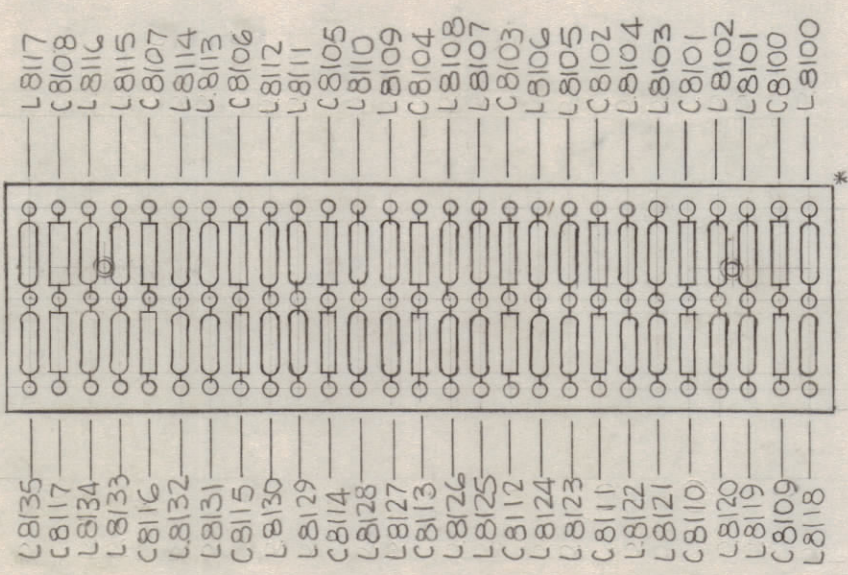 L8117
C8108
L8116
L8115
C8107
L8114
L8113
C8106
L8112
L8111
C8105
L8110
L8109
C8104
L8108
L8107
C8103
L8106
L8105
C8102
L8104
L8103
C8101
L8102
L8101
C8100
L8100
*
L8135
C8117
L8134
L8133
C8116
L8132
L8131
C8115
L8130
L8129
C8114
L8128
L8127
C8113
L8126
L8125
C8112
L8124
L8123
C8111
L8122
L8121
C8110
L8120
L8119
C8109
L8118